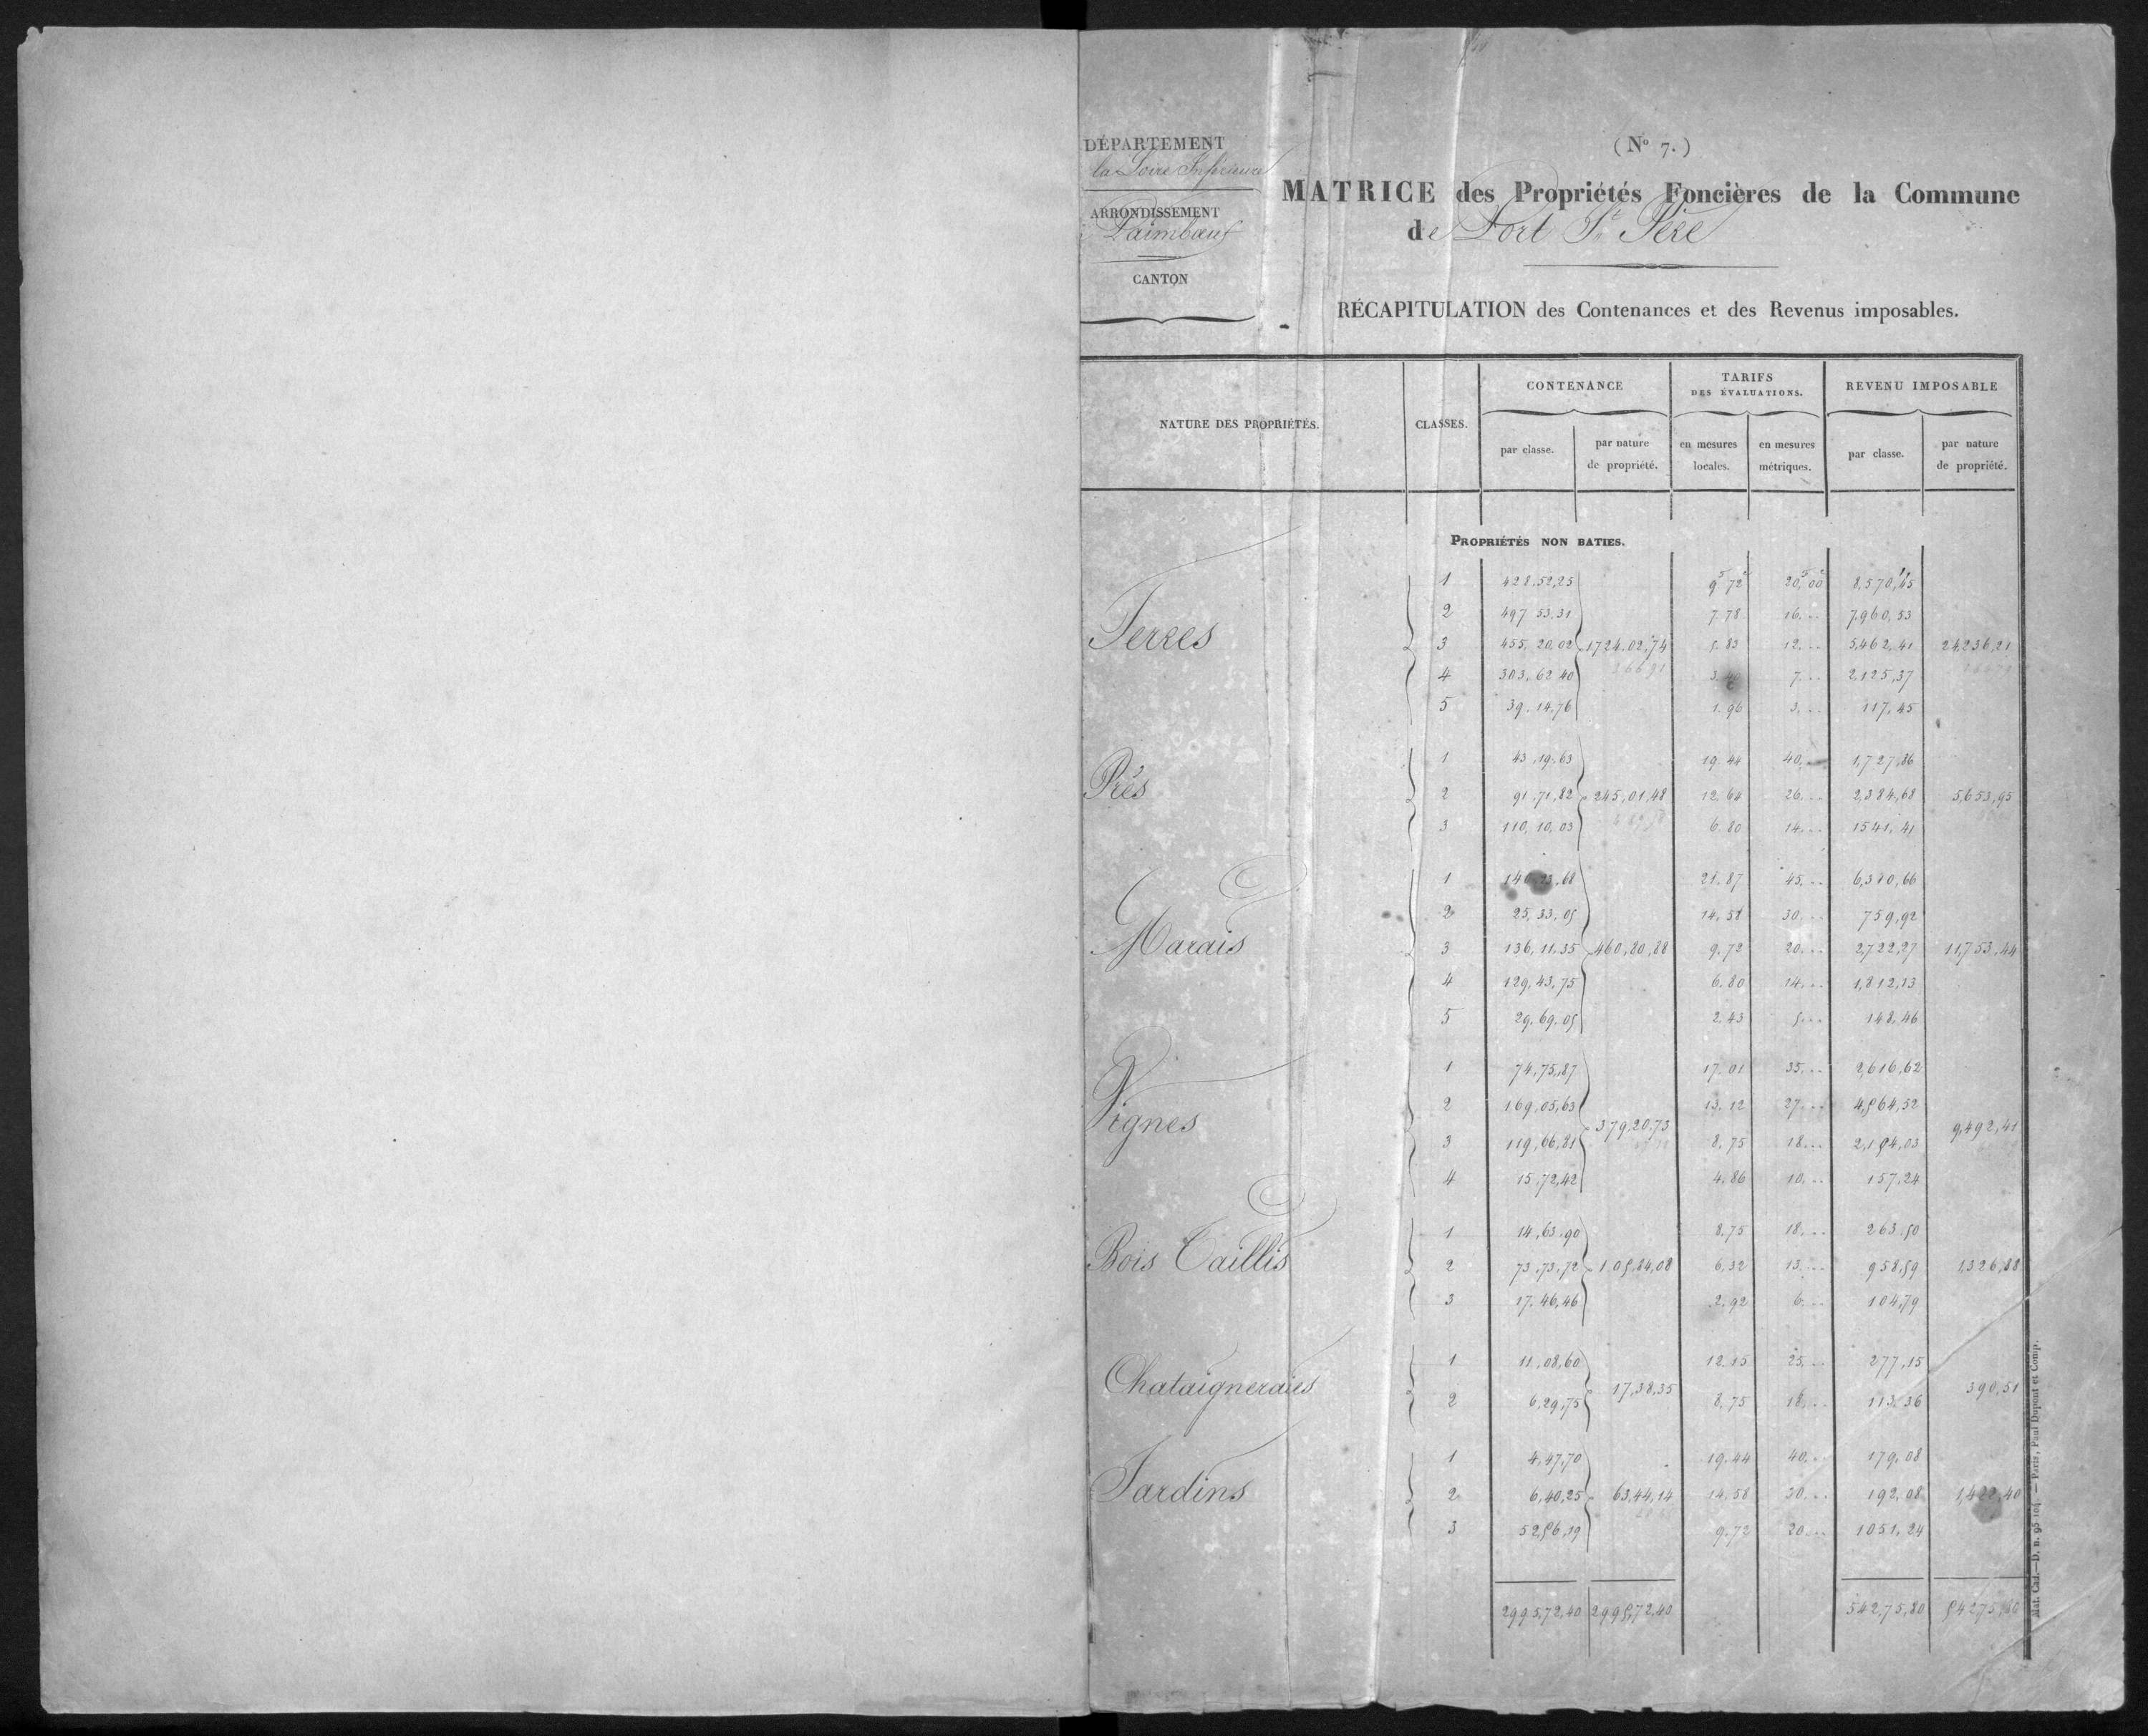 DÉPARTEMENT
la Loire Inférieure
ARRONDISSEMENT
Paimboeuf
CANTON
(Nº 7.)
MATRICE des Propriétés Foncières de la Commune
de Port St Père
RÉCAPITULATION des Contenances et des Revenus imposables.
NATURE DES PROPRIÉTÉS. CLASSES. CONTENANCE TARIFS DES ÉVALUATIONS. REVENU IMPOSABLE
par classe. par nature de propriété. en mesures locales. en mesures métriques. par classe. par nature de propriété.
PROPRIÉTÉS NON BATIES.
Terres
1 428.52,25 9 72 20,00 8,570,45
2 497 53.31 7.78 16... 7,960,53
3 455,20,02 1724.02,74 5.83 12... 5,462,41 24,236,21
4 303,62 40 7... 2,125,37
5 39.14,76 1.96 3... 117,45
Prés
1 43.19.63 19.44 40... 1,727,86
2 91.71,82 245,01,48 12.64 26... 2,384,68 5,653,95
3 110,10,03 6.80 14... 1541,41
Marais
1 140,23,68 21.87 45... 6,310,66
2 25,33,05 14,58 30... 759,92
3 136,11,35 460,80,88 9.72 20... 2,722,27 11,753,44
4 129,43,75 6.80 14... 1,812,13
5 29.69.05 2.43 5... 148,46
Vignes
1 74,75,87 17.01 35... 2,616,62
2 169,05,63 13.12 27... 4,564,52
379,20,73 9,492,41
3 119,66,81 8.75 18... 2,154,03
4 15,72,42 4.86 10... 157,24
Bois Taillis
1 14,63.90 8.75 18... 263.50
2 73,73,72 105,84,08 6,32 13... 958,59 1,326,88
3 17.46,46 2.92 6... 104,79
Chataigneraies
1 11,08,60 12.15 25... 277,15
17,38,35 390,51
2 6,29,75 8,75 18... 113.36
Jardins
1 4,47,70 19.44 40... 179,08
2 6,40,25 63,44,14 14.58 30... 192,08 1,422,40
3 52,56,19 9.72 20... 1051,24
2995,72,40 2995,72,40 542,75,80 54275,80
Mat. Cad.—D. n. 95 104 — Paris, Paul Dupont et Comp.